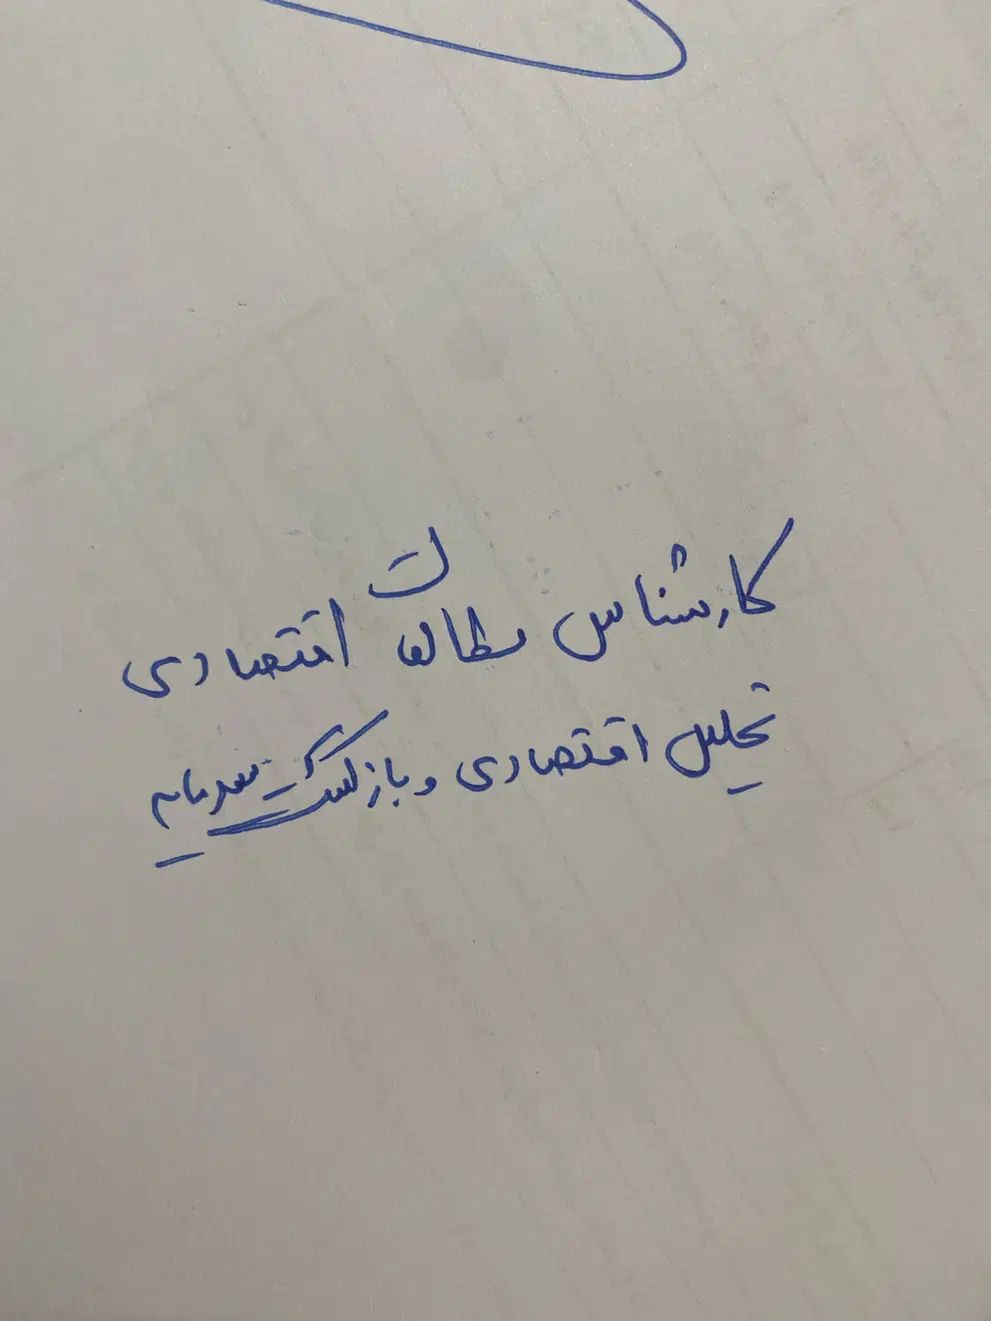 کارشناس مطالعات اقتصادی
تحلیل اقتصادی و بازگشت سرمایه